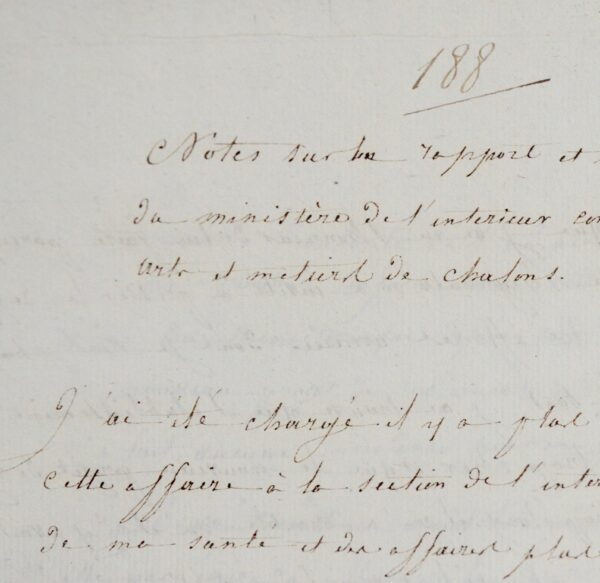 188
Notes sur un rapport et
du ministère de l'interieur con
arts et metiers de chalons.
J'ai ete chargé il y a plus
cette affaire a la section de l'inter
de ma santé et des affaires plus